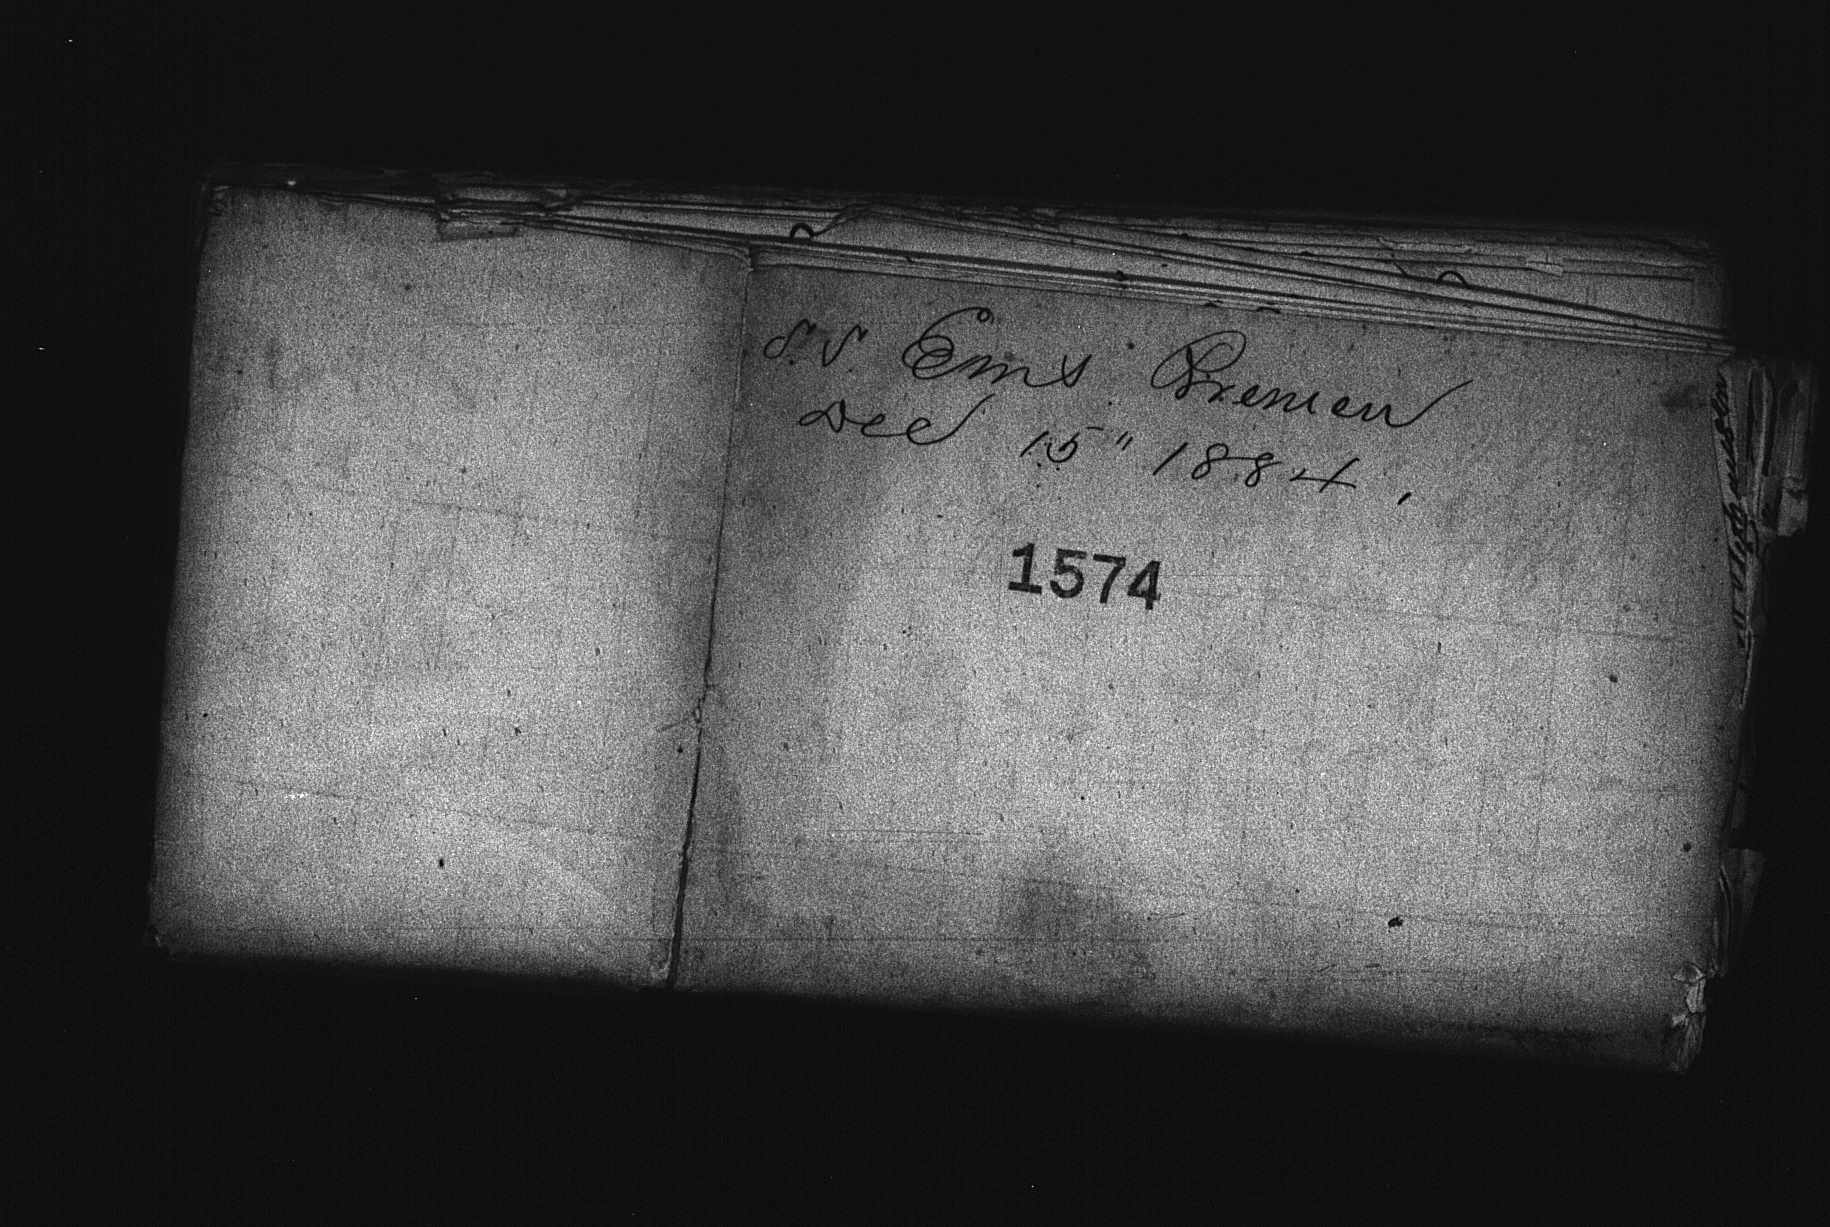 S.S. Ems. Bremen
Dec 15" 1884.
1574